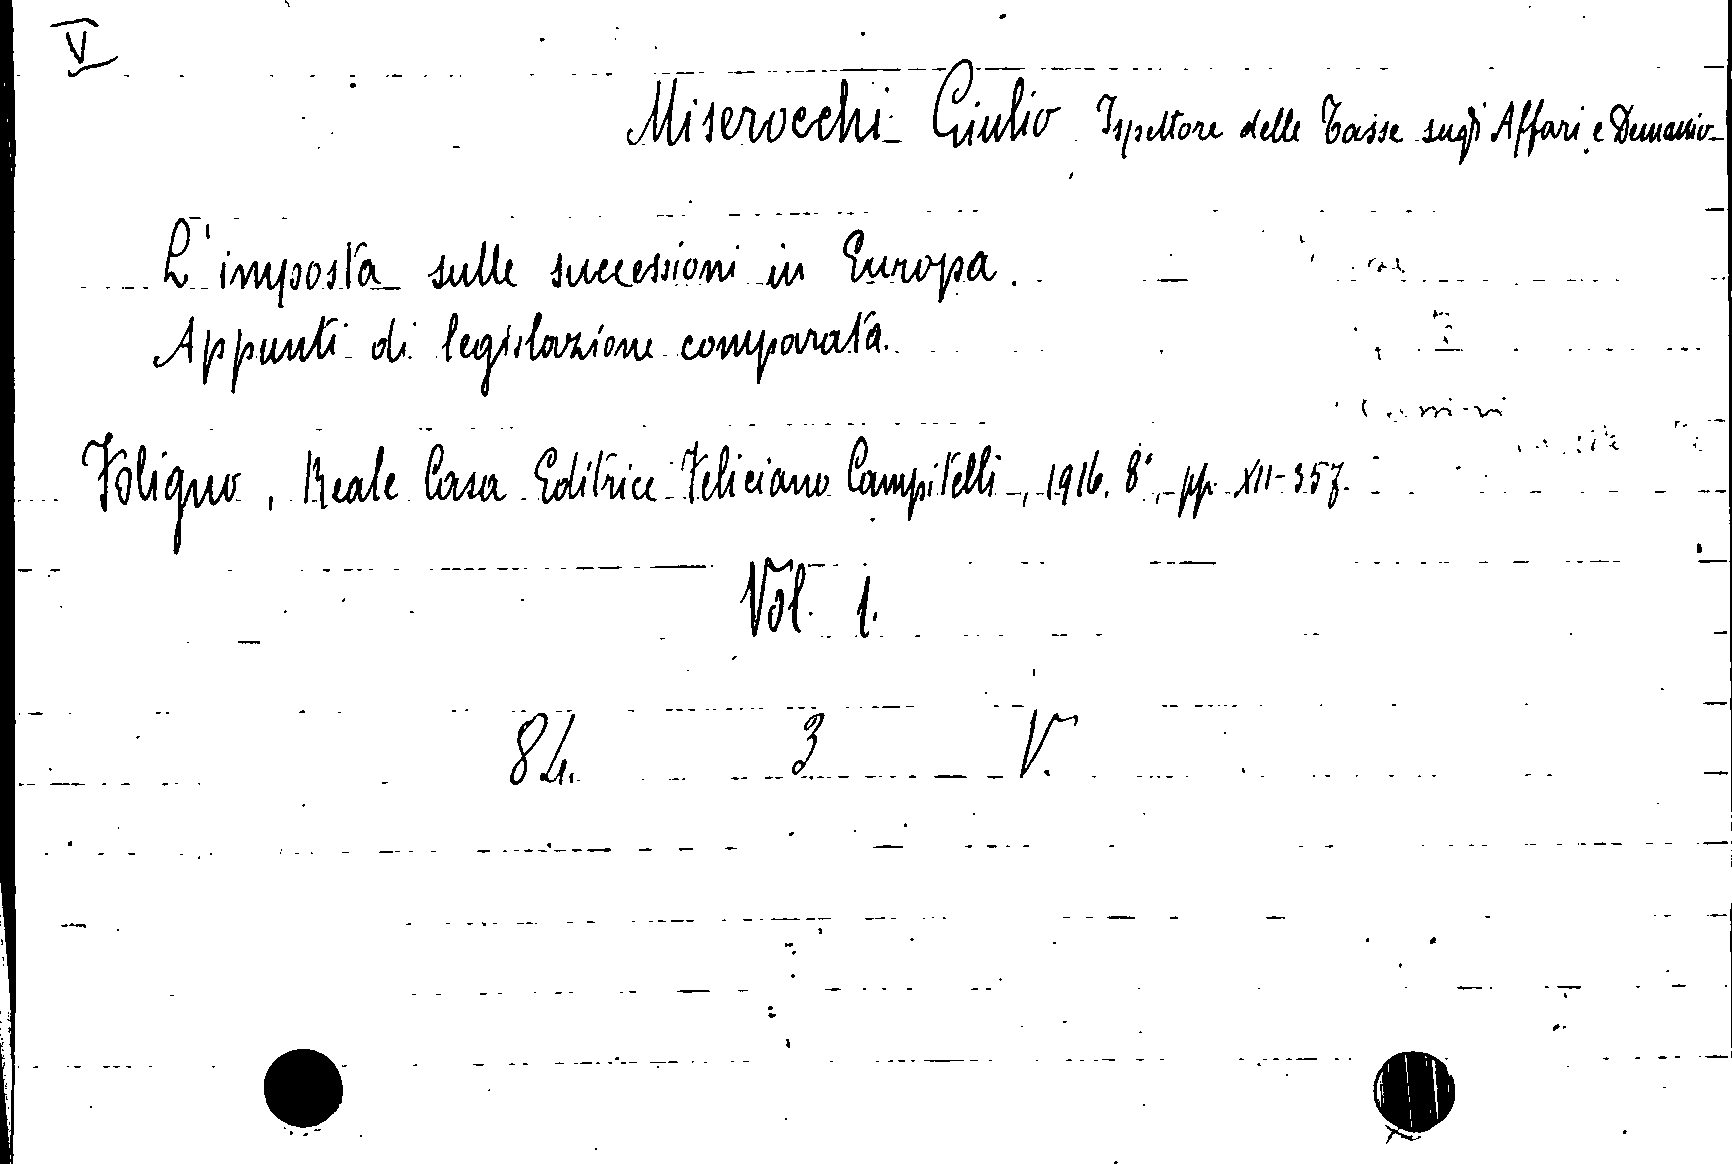 V
Miserocchi Giulio Ispettore delle Tasse sugli Affari e Demanio
L'imposta sulle successioni in Europa.
Appunti di legislazione comparata.
Foligno, Reale Casa Editrice Feliciano Campitelli, 1916. 8°, pp. XII-357.
Vol. 1.
84. 3 V.